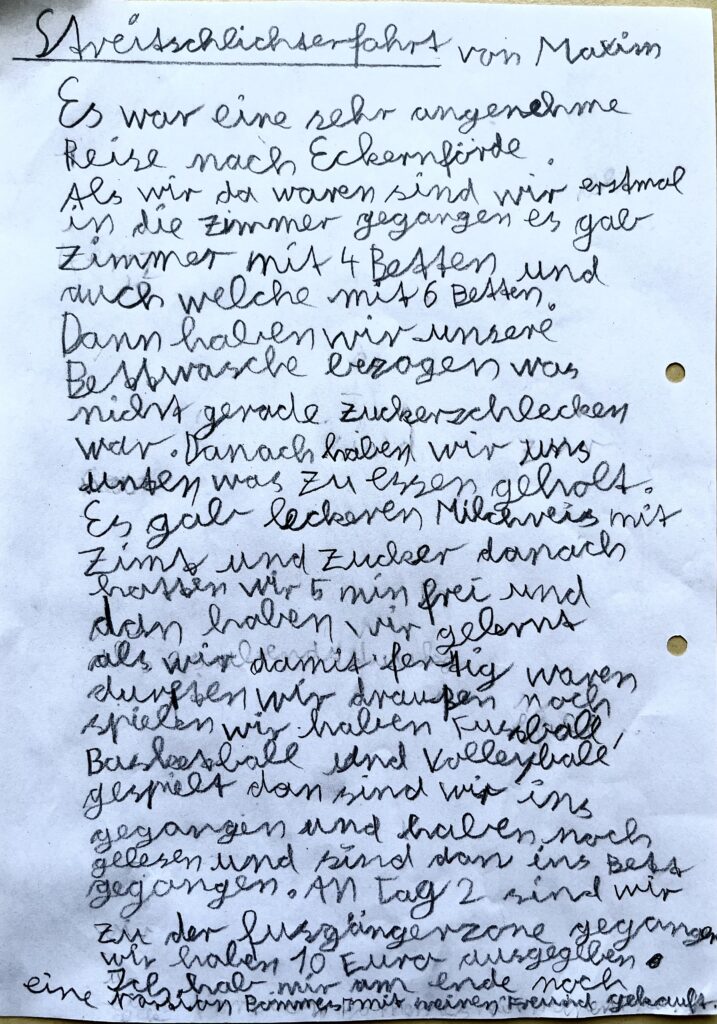 Streitschlichterfahrt von Maxim
Es war eine sehr angenehme
Reise nach Eckernförde.
Als wir da waren sind wir erstmal
in die Zimmer gegangen es gab
Zimmer mit 4 Betten und
auch welche mit 6 Betten.
Dann haben wir unsere
Bettwäsche bezogen was
nicht gerade Zuckerschlecken
war. Danach haben wir uns
unten was zu essen geholt.
Es gab leckeren Milchreis mit
Zimt und Zucker danach
hatten wir 5 min frei und
dan haben wir gelernt
als wir damit fertig waren
durften wir draußen noch
spielen wir haben Fussball,
Basketball und Volleyball
gespielt dan sind wir ins
gegangen und haben noch
gelesen und sind dan ins Bett
gegangen. An Tag 2 sind wir
zu der fusgängerzone gegangen
wir haben 10 Euro ausgegeben.
Ich hab mir am ende noch
eine mit meinen Freund gekauft.